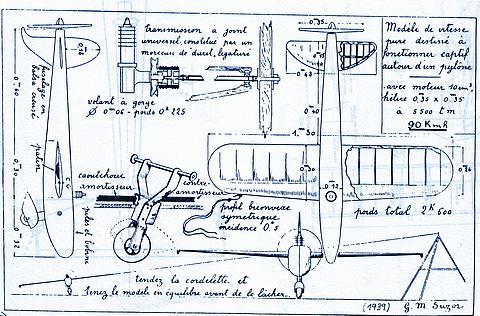 transmission a joint
universel, constitué par un
morceau de durit, ligaturé
Modèle de vitesse
pure destiné à
fonctionner captif
autour d'un pylône
avec moteur 10cm³
hélice 0,35 x 0,35
à 5500 tm
90 Kmh
volant à gorge
Ø 0ᵐ06 - poids 0ᵏ225
0ᵐ35
0ᵐ48
0ᵐ40
1ᵐ30
0ᵐ30
0ᵐ12
fuselage en
balsa creusé
patin
C G
0ᵐ32
caoutchouc
amortisseur
contre-
amortisseur
profil biconvexe
symetrique
incidence 0°5
poids total 2ᴷ600
tendez la cordelette et
tenez le modèle en équilibre avant de le lâcher.
(1939) G. M Suzor